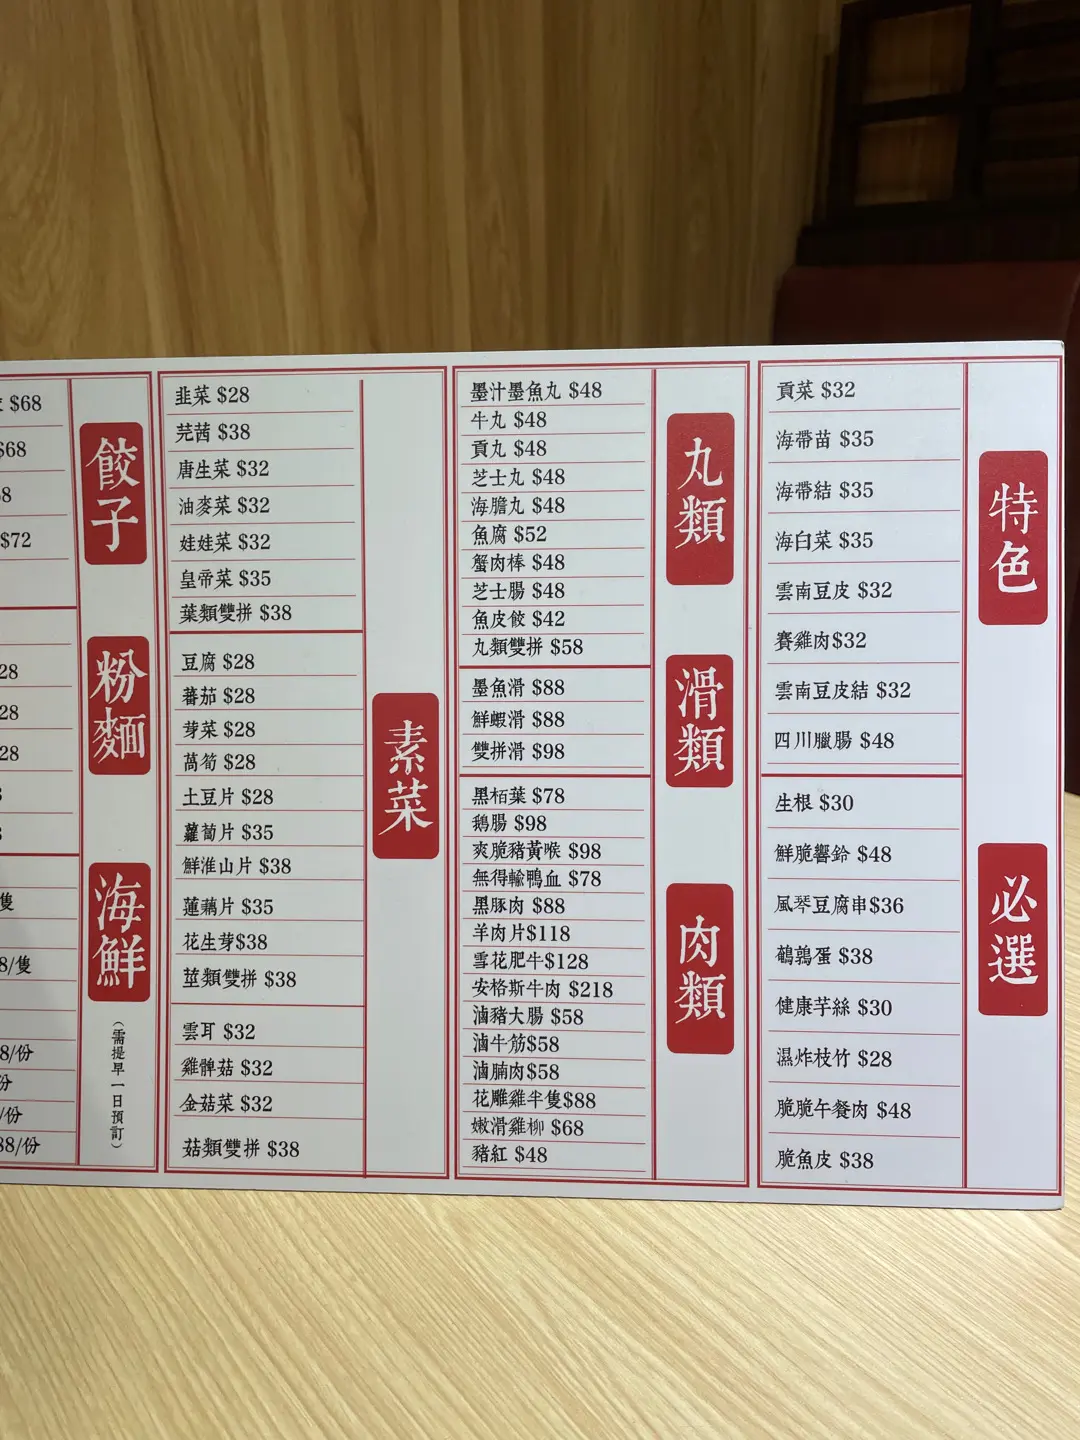 特色
貢菜 $32
海帶苗 $35
海帶結 $35
海白菜 $35
雲南豆皮 $32
賽雞肉$32
雲南豆皮結 $32
四川臘腸 $48
必選
生根 $30
鮮脆響鈴 $48
風琴豆腐串$36
鵪鶉蛋 $38
健康芋絲 $30
濕炸枝竹 $28
脆脆午餐肉 $48
脆魚皮 $38
丸類
墨汁墨魚丸 $48
牛丸 $48
貢丸 $48
芝士丸 $48
海膽丸 $48
魚腐 $52
蟹肉棒 $48
芝士腸 $48
魚皮餃 $42
丸類雙拼 $58
滑類
墨魚滑 $88
鮮蝦滑 $88
雙拼滑 $98
肉類
黑栢葉 $78
鵝腸 $98
爽脆豬黃喉 $98
無得輸鴨血 $78
黑豚肉 $88
羊肉片$118
雪花肥牛$128
安格斯牛肉 $218
滷豬大腸 $58
滷牛筋$58
滷腩肉$58
花雕雞半隻$88
嫩滑雞柳 $68
豬紅 $48
素菜
韭菜 $28
芫茜 $38
唐生菜 $32
油麥菜 $32
娃娃菜 $32
皇帝菜 $35
葉類雙拼 $38
豆腐 $28
蕃茄 $28
芽菜 $28
萵筍 $28
土豆片 $28
蘿蔔片 $35
鮮淮山片 $38
蓮藕片 $35
花生芽$38
莖類雙拼 $38
雲耳 $32
雞髀菇 $32
金菇菜 $32
菇類雙拼 $38
餃子
$68
$68
8
$72
粉麵
28
28
28
海鮮
(需提早一日預訂)
隻
8/隻
8/份
份
/份
88/份